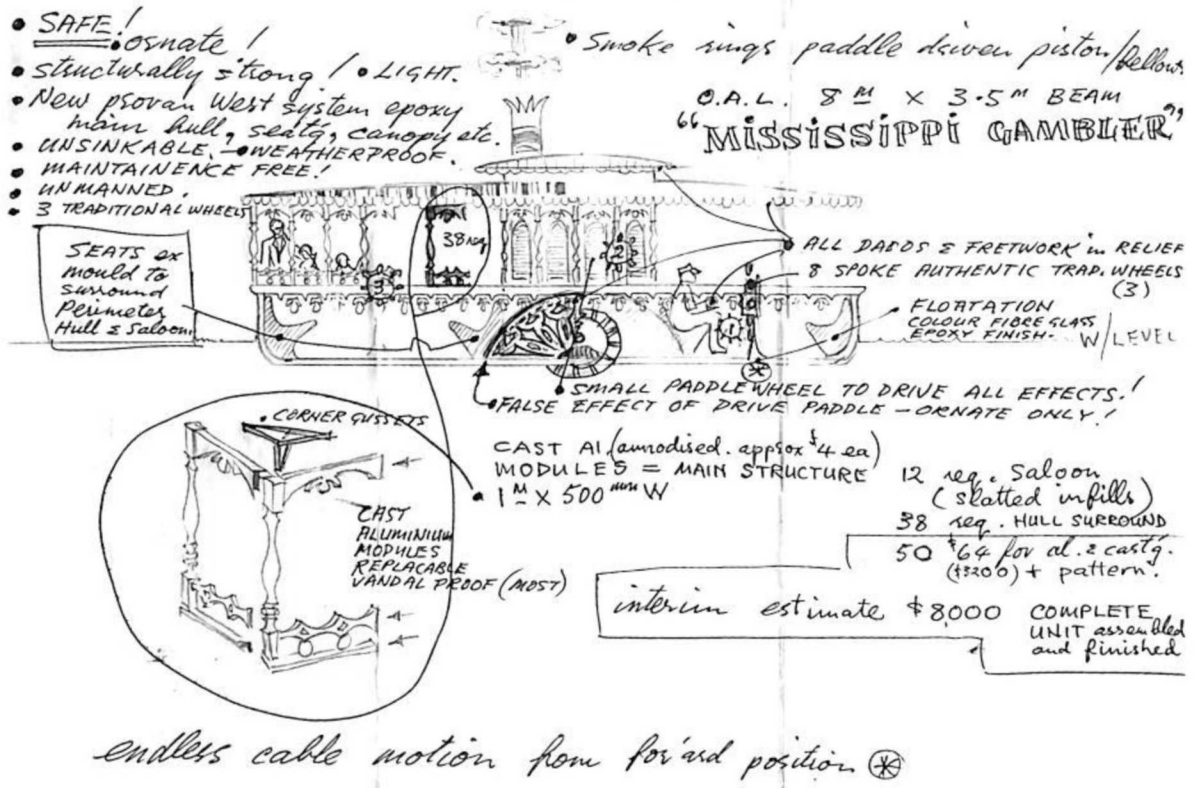 • SAFE!
• ornate!
• structurally strong! • LIGHT.
• New proven West system epoxy
main hull, seat'g, canopy etc.
• UNSINKABLE. • WEATHERPROOF.
• MAINTAINENCE FREE!
• UNMANNED.
• 3 TRADITIONAL WHEELS
• Smoke rings paddle driven piston/bellows.
O.A.L. 8M × 3·5M BEAM
"MISSISSIPPI GAMBLER"
SEATS ex
mould to
surround
Perimeter
Hull & Saloon.
38 REQ
3
2
1
• ALL DADOS & FRETWORK in RELIEF
8 SPOKE AUTHENTIC TRAD. WHEELS
(3)
• FLOATATION
COLOUR FIBRE GLASS
EPOXY FINISH.
W/LEVEL
• SMALL PADDLE WHEEL TO DRIVE ALL EFFECTS!
• FALSE EFFECT OF DRIVE PADDLE – ORNATE ONLY!
• CORNER GUSSETS
CAST
ALUMINIUM
MODULES
REPLACABLE
VANDAL PROOF (MOST)
CAST Al. (annodised. approx $4 ea)
MODULES = MAIN STRUCTURE
• 1M × 500mm W
12 req. Saloon
(slatted infills)
38 req. HULL SURROUND
50 $64 for al. & cast'g.
($3200) + pattern.
interim estimate $8,000 COMPLETE
UNIT assembled
and finished
endless cable motion from for'ard position ✳